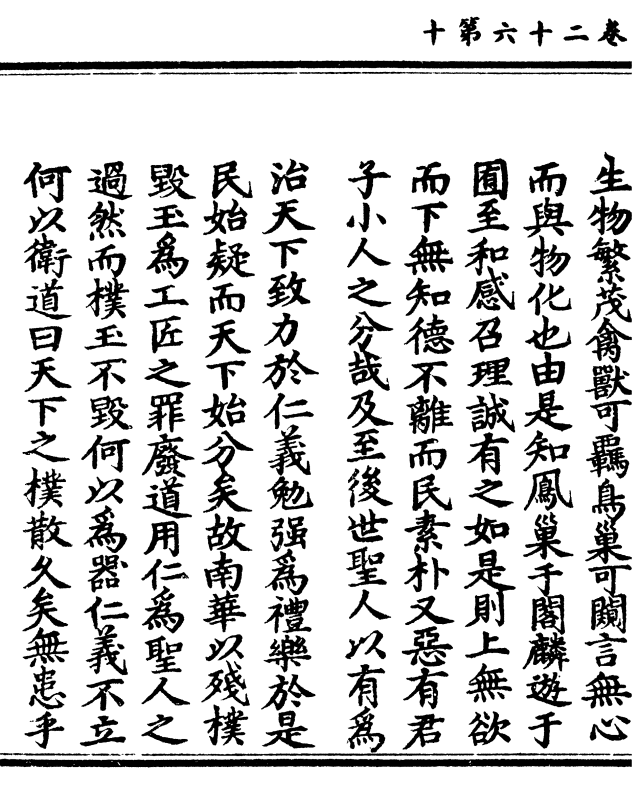 卷二十六第十
生物繁茂禽獸可羈鳥巢可闚言無心
而與物化也由是知鳳巢于閣麟遊于
囿至和感召理誠有之如是則上無欲
而下無知德不離而民素朴又惡有君
子小人之分哉及至後世聖人以有為
治天下致力於仁義勉强為禮樂於是
民始疑而天下始分矣故南華以殘樸
毀玉為工匠之罪廢道用仁為聖人之
過然而樸玉不毀何以為器仁義不立
何以衛道曰天下之樸散久矣無患乎